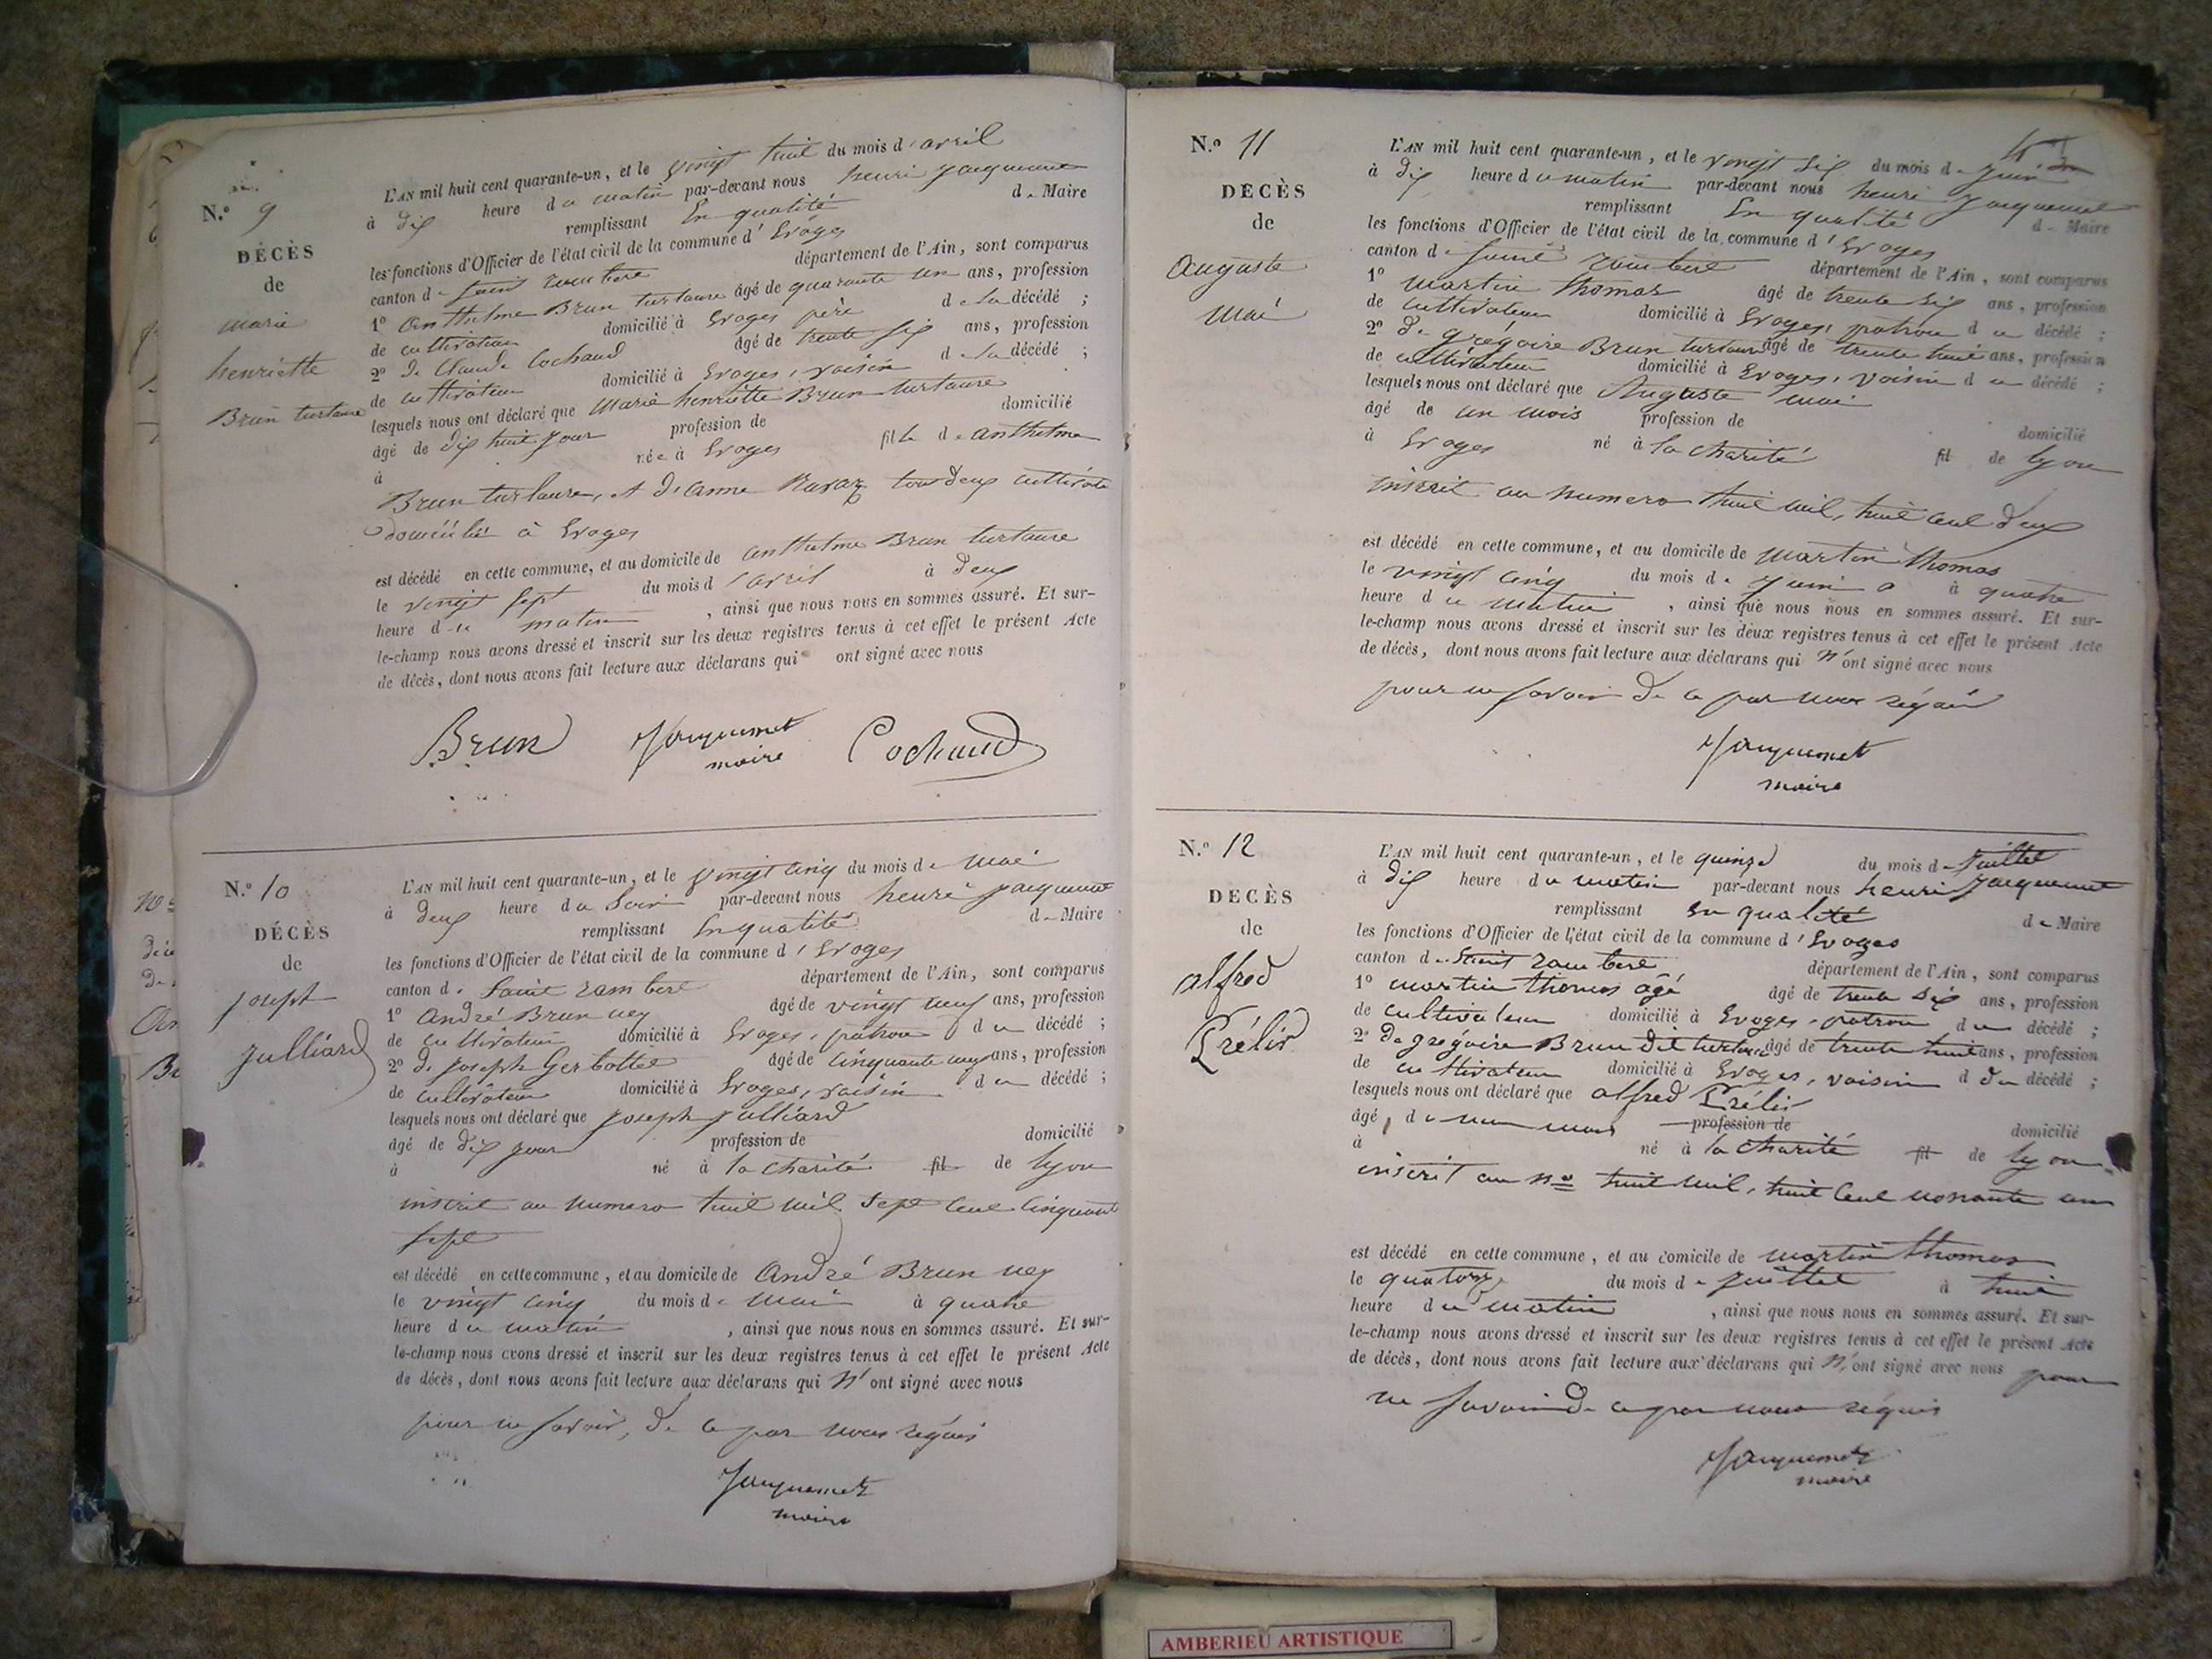 N.º 9
DÉCÈS
de
marie
henriette
Brun turlaure
L'AN mil huit cent quarante-un, et le vingt huit du mois d' avril
à dix heure du matin par-devant nous henri jacquemet
remplissant En qualité de Maire
les fonctions d'Officier de l'état civil de la commune d' Evoges
canton de saint rambert département de l'Ain, sont comparus
1º anthelme Brun turlaure âgé de quarante un ans, profession
de cultivateur domicilié à Evoges père de la décédé ;
2º de Claude Cochaud âgé de trente six ans, profession
de cultivateur domicilié à Evoges, voisin de la décédé ;
lesquels nous ont déclaré que marie henriette Brun turlaure
âgé de dix huit jour profession de domicilié
à née à Evoges fille de anthelme
Brun turlaure, et d'anne Ravaz tous deux cultivate
domicilié à Evoges
est décédé en cette commune, et au domicile de anthelme Brun turlaure
le vingt sept du mois d'avril à deux
heure du matin , ainsi que nous nous en sommes assuré. Et sur-
le-champ nous avons dressé et inscrit sur les deux registres tenus à cet effet le présent Acte
de décès, dont nous avons fait lecture aux déclarans qui ont signé avec nous
Brun Jacquemet Cochaud
maire
N.º 10
DÉCÈS
de
joseph
julliard
L'AN mil huit cent quarante-un, et le vingt cinq du mois de mai
à deux heure du soir par-devant nous henri jacquemet
remplissant En qualité de Maire
les fonctions d'Officier de l'état civil de la commune d' Evoges
canton de saint rambert département de l'Ain, sont comparus
1º André Brun ney âgé de vingt neuf ans, profession
de cultivateur domicilié à Evoges, patron du décédé ;
2º de joseph Gerbollet âgé de cinquante ans, profession
de cultivateur domicilié à Evoges, voisin du décédé ;
lesquels nous ont déclaré que joseph julliard
âgé de dix jour profession de domicilié
à né à la charité fil de lyon
inscrit au numero huit mil sept cent cinquante
sept
est décédé en cette commune, et au domicile de André Brun ney
le vingt cinq du mois de mai à quatre
heure du matin , ainsi que nous nous en sommes assuré. Et sur-
le-champ nous avons dressé et inscrit sur les deux registres tenus à cet effet le présent Acte
de décès, dont nous avons fait lecture aux déclarans qui n'ont signé avec nous
pour ne savoir, de ce par nous réquis
Jacquemet
maire
N.º 11
DECÈS
de
Auguste
mai
L'AN mil huit cent quarante-un, et le vingt six du mois de juin
à dix heure du matin par-devant nous henri jacquemet
remplissant En qualité de Maire
les fonctions d'Officier de l'état civil de la commune d' Evoges
canton de saint rambert département de l'Ain, sont comparus
1º martin thomas âgé de trente six ans, profession
de cultivateur domicilié à Evoges, patron du décédé ;
2º de grégoire Brun turlaure âgé de trente huit ans, profession
de cultivateur domicilié à Evoges, voisin du décédé ;
lesquels nous ont déclaré que Auguste mai
âgé de un mois profession de domicilié
à Evoges né à la charité fil de lyon
inscrit au numero huit mil, huit cent deux
est décédé en cette commune, et au domicile de martin thomas
le vingt cinq du mois de juin à quatre
heure du matin , ainsi que nous nous en sommes assuré. Et sur-
le-champ nous avons dressé et inscrit sur les deux registres tenus à cet effet le présent Acte
de décès, dont nous avons fait lecture aux déclarans qui n'ont signé avec nous
pour ne savoir de ce par nous réquis
Jacquemet
maire
N.º 12
DECÈS
de
alfred
Prélis
L'AN mil huit cent quarante-un, et le quinze du mois de juillet
à dix heure du matin par-devant nous henri jacquemet
remplissant en qualité de Maire
les fonctions d'Officier de l'état civil de la commune d' Evoges
canton de saint rambert département de l'Ain, sont comparus
1º martin thomas âgé âgé de trente six ans, profession
de cultivateur domicilié à Evoges, patron du décédé ;
2º de grégoire Brun dit turlaure âgé de trente huit ans, profession
de cultivateur domicilié à Evoges, voisin d du décédé ;
lesquels nous ont déclaré que alfred Prélis
âgé, de un mois profession de domicilié
à né à la charité fil de lyon
inscrit au nº huit mil, huit cent nonante un
est décédé en cette commune, et au domicile de martin thomas
le quatorze du mois de juillet à huit
heure du matin , ainsi que nous nous en sommes assuré. Et sur-
le-champ nous avons dressé et inscrit sur les deux registres tenus à cet effet le présent Acte
de décès, dont nous avons fait lecture aux déclarans qui n'ont signé avec nous pour
ne savoir de ce par nous réquis
Jacquemet
maire
AMBERIEU ARTISTIQUE